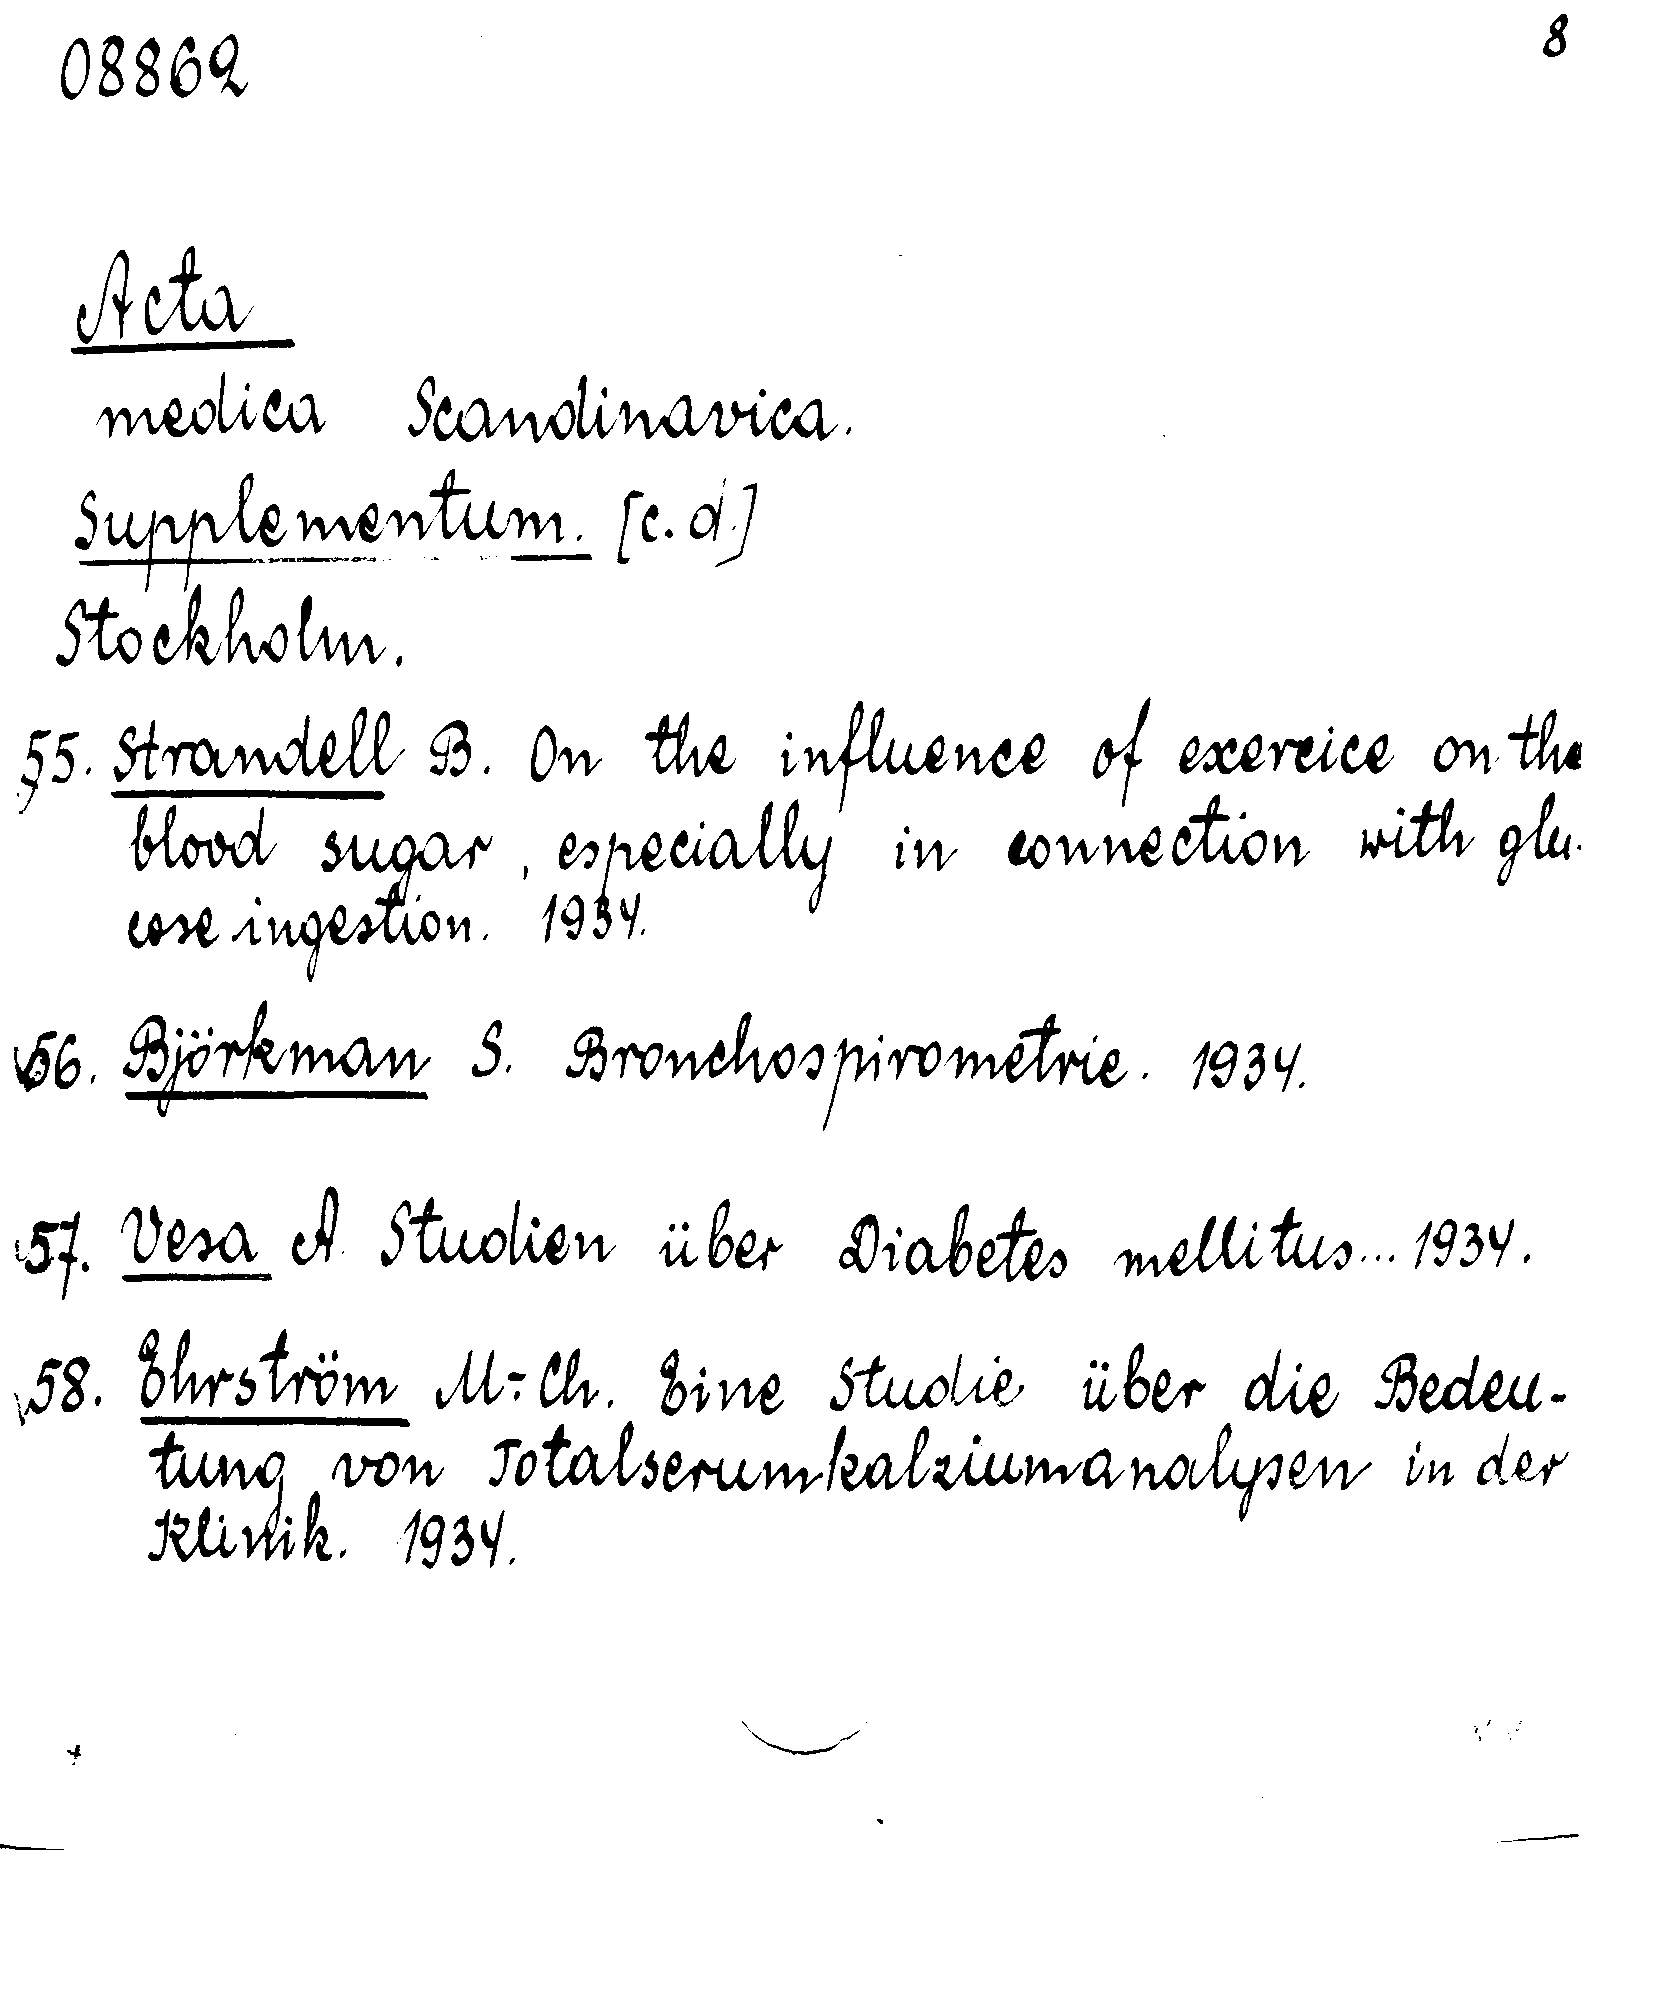 08862
8
Acta
medica Scandinavica.
Supplementum. [c.d.]
Stockholm.
55. Strandell B. On the influence of exercice on the
blood sugar, especially in connection with glu-
cose ingestion. 1934.
56. Björkman S. Bronchospirometrie. 1934.
57. Vesa A. Studien über Diabetes mellitus... 1934.
58. Ehrström M.-Ch. Eine Studie über die Bedeu-
tung von Totalserumkalziumanalysen in der
Klinik. 1934.